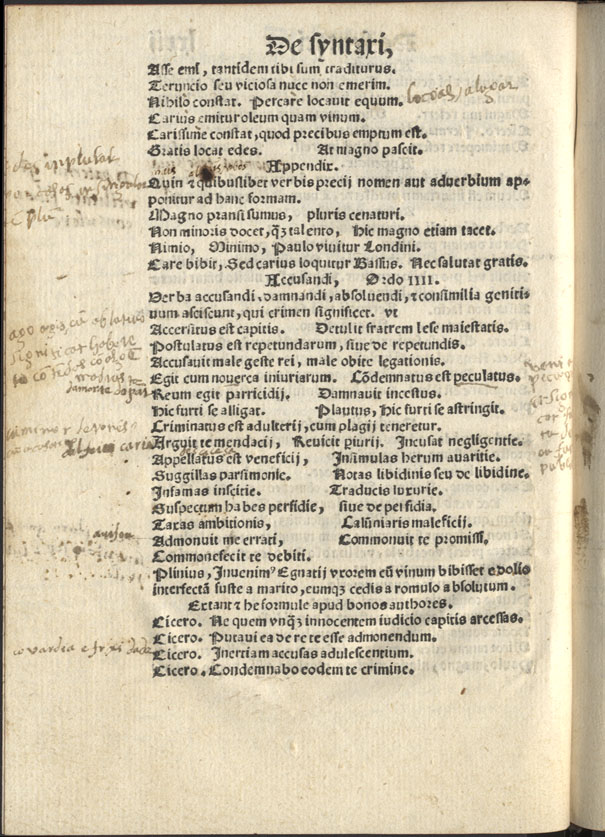 De syntaxi,
Asse emi, tantidem tibi sum traditurus.
Teruncio seu viciosa nuce non emerim.
Nihilo constat. Percare locauit equum.
Carius emitur oleum quam vinum.
Carissime constat, quod precibus emptum est.
Gratis locat edes. At magno pascit.
Appendix.
Quin & quibuslibet verbis precij nomen aut aduerbium ap-
ponitur ad hanc formam.
Magno pransi sumus, pluris cenaturi.
Non minoris docet, qȝ talento, Hic magno etiam tacet.
Nimio, Minimo, Paulo viuitur Londini.
Care bibit, Sed carius loquitur Bassus. Nec salutat gratis.
Accusandi, Ordo IIII.
Verba accusandi, damnandi, absoluendi, & consimilia geniti-
uum asciscunt, qui crimen significet. vt
Accersitus est capitis. Detulit fratrem lese maiestatis.
Postulatus est repetundarum, siue de repetundis.
Accusauit male geste rei, male obite legationis.
Egit cum nouerca iniuriarum. Cōdemnatus est peculatus.
Reum egit parricidij. Damnauit incestus.
Hic furti se alligat. Plautus, Hic furti se astringit.
Criminatus est adulterij, cum plagij teneretur.
Arguit te mendacij, Reuicit piurij. Incusat negligentie.
Appellatus est veneficij, Insimulas herum auaritie.
Suggillas parsimonie. Notas libidinis seu de libidine.
Infamas inscitie. Traducis luxurie.
Suspectum habes perfidie, siue de perfidia.
Taxas ambitionis, Calūniaris maleficij.
Admonuit me errati, Commonuit te promissi.
Commonefecit te debiti.
Plinius, Inuenimꝰ Egnatij vxorem cū vinum bibisset e dolio
interfectā fuste a marito, eumqȝ cedis a romulo absolutum.
Extant & he formule apud bonos authores.
Cicero. Ne quem vnqȝ innocentem iudicio capitis arcessas.
Cicero. Putaui ea de re te esse admonendum.
Cicero. Inertiam accusas adulescentium.
Cicero. Condemnabo eodem te crimine.